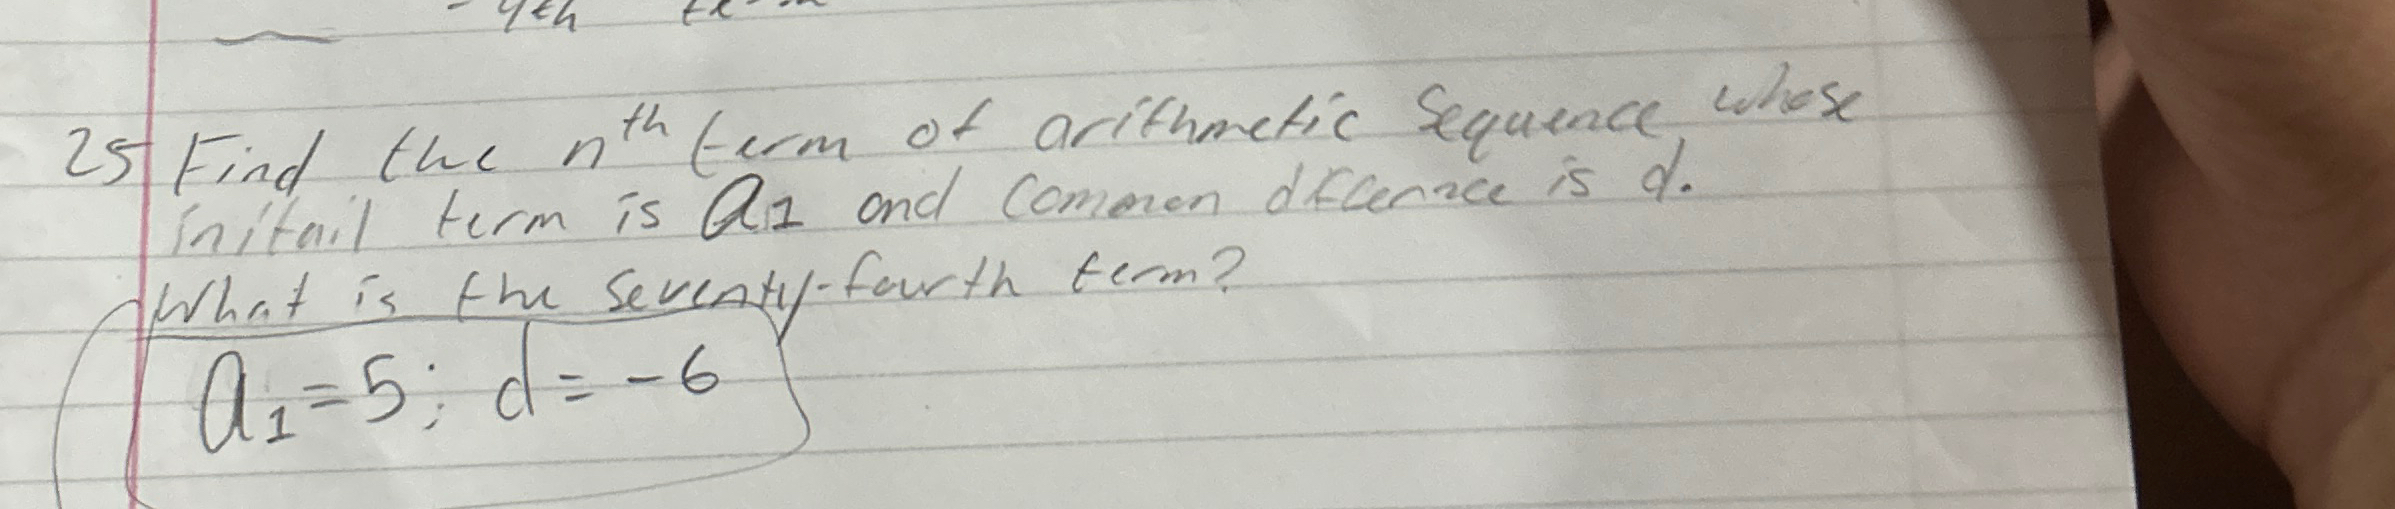 4th term
25 Find the nth term of arithmetic Sequence, whose
initail term is a1 and Common dfcernce is d.
What is the seventy-fourth term?
a1 = 5; d = -6